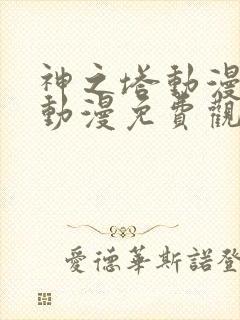 神之塔動漫
動漫免費觀
愛德華斯諾登